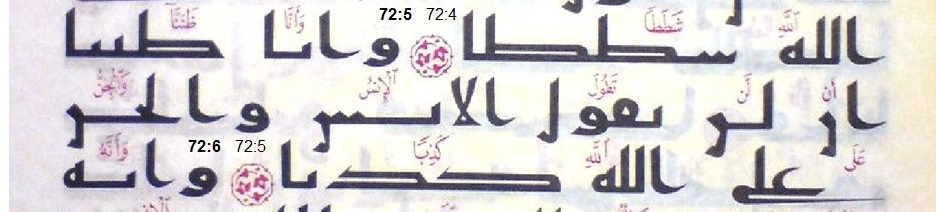 72:5 72:4
الله شططا وانا ظننا
ٱللَّهِ شَطَطًا وَأَنَّا ظَنَنَّا
ان لن تقول الانس والجن
أَن لَّن تَقُولَ ٱلْإِنسُ وَٱلْجِنُّ
72:6 72:5
على الله كذبا وانه
عَلَى ٱللَّهِ كَذِبًا وَأَنَّهُ